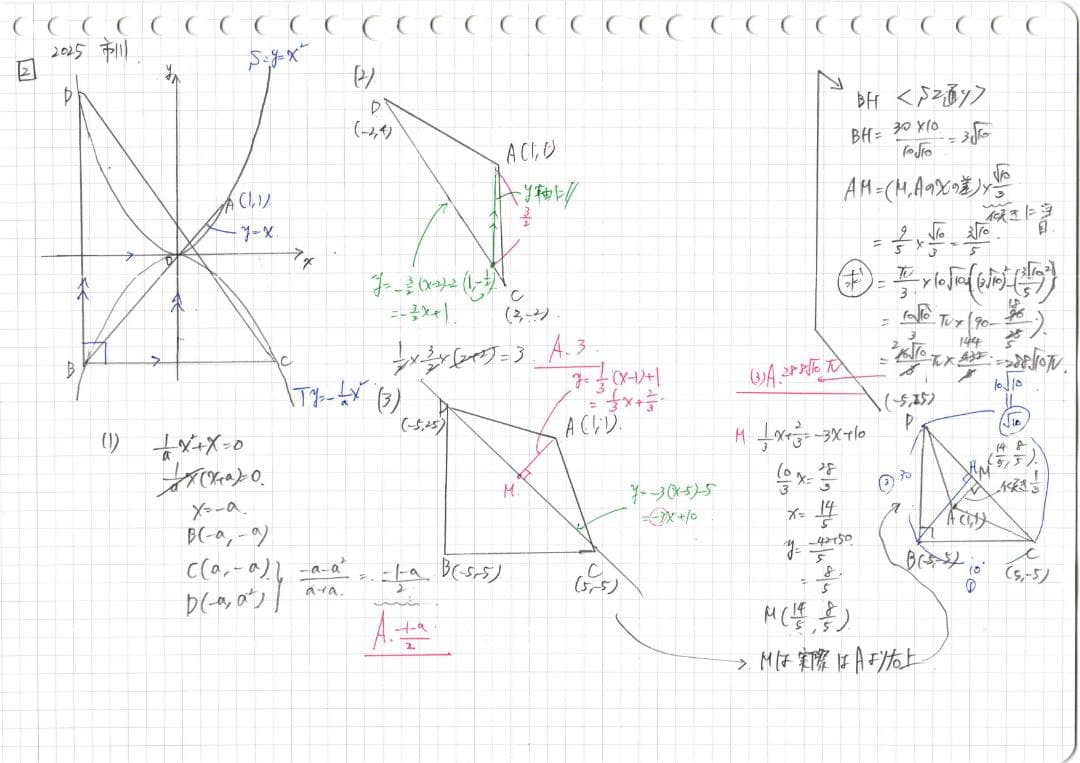 2025 市川
2
S: y=x²
y
D
A(1,1)
y=x
O
x
B
C
T y=-1/a x²
(1)
1/a x²+x=0
1/a x(x+a)=0.
x=-a.
B(-a,-a)
C(a,-a)
D(-a,a²)
(-a-a²)/(a+a) = (-1-a)/2
A. (-1-a)/2
(2)
D
(-2,4)
A(1,1)
y軸と//
3/2
y=-3/2(x-2)-2 (1,-1/2)
=-3/2x+1
C
(2,-2)
1/2×3/2×(2+2)=3
A. 3
(3)
D
(-5,25)
y=1/3(x-1)+1
=1/3x+2/3
A(1,1)
M
y=-3(x-5)-5
=-3x+10
B(-5,-5)
C
(5,-5)
M 1/3x+2/3=-3x+10
10/3x=28/3
x=14/5
y=(-42+50)/5
=8/5
M(14/5,8/5)
Mは実際はAより右上
BH <S2通り>
BH=(30×10)/(10√10)=3√10
AM=(M,Aのxの差)×√10/3
傾きに注目
=9/5×√10/3=3√10/5
求=π/3×10√10{(3√10)²-(3√10/5)²}
=10√10/3π×(90-90/25) 18 5
=10√10/3π×432/5=288√10π 2 144
(3)A. 288√10π
(-5,25)
D
10√10
√10
(14/5,8/5)
H
M
傾き1/3
③ 30
A(1,1)
B(-5,-5)
10
①
C
(5,-5)